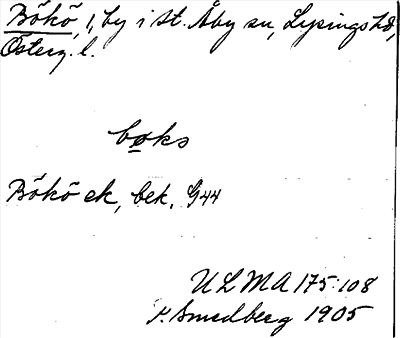 Bökö, 1, by i St. Åby sn, Lysings hd,
Österg. l.
boks
Bökö ek, bek. G44
ULMA 175:108
P. Smedberg 1905